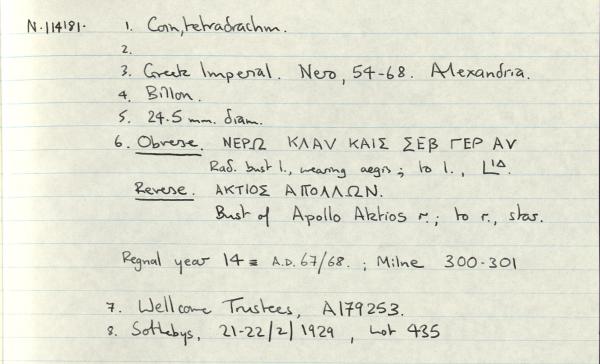 N.114181. 1. Coin, tetradrachm.
2.
3. Greek Imperial. Nero, 54-68. Alexandria.
4. Billon.
5. 24.5 mm. diam.
6. Obverse. ΝΕΡΩ ΚΛΑΥ ΚΑΙΣ ΣΕΒ ΓΕΡ ΑΥ
Rad. bust l., wearing aegis; to l., LΙΔ
Reverse. ΑΚΤΙΟΣ ΑΠΟΛΛΩΝ.
Bust of Apollo Aktios r.; to r., star.
Regnal year 14 = A.D. 67/68. ; Milne 300-301
7. Wellcome Trustees, A179253.
8. Sothebys, 21-22/2/1929, Lot 435